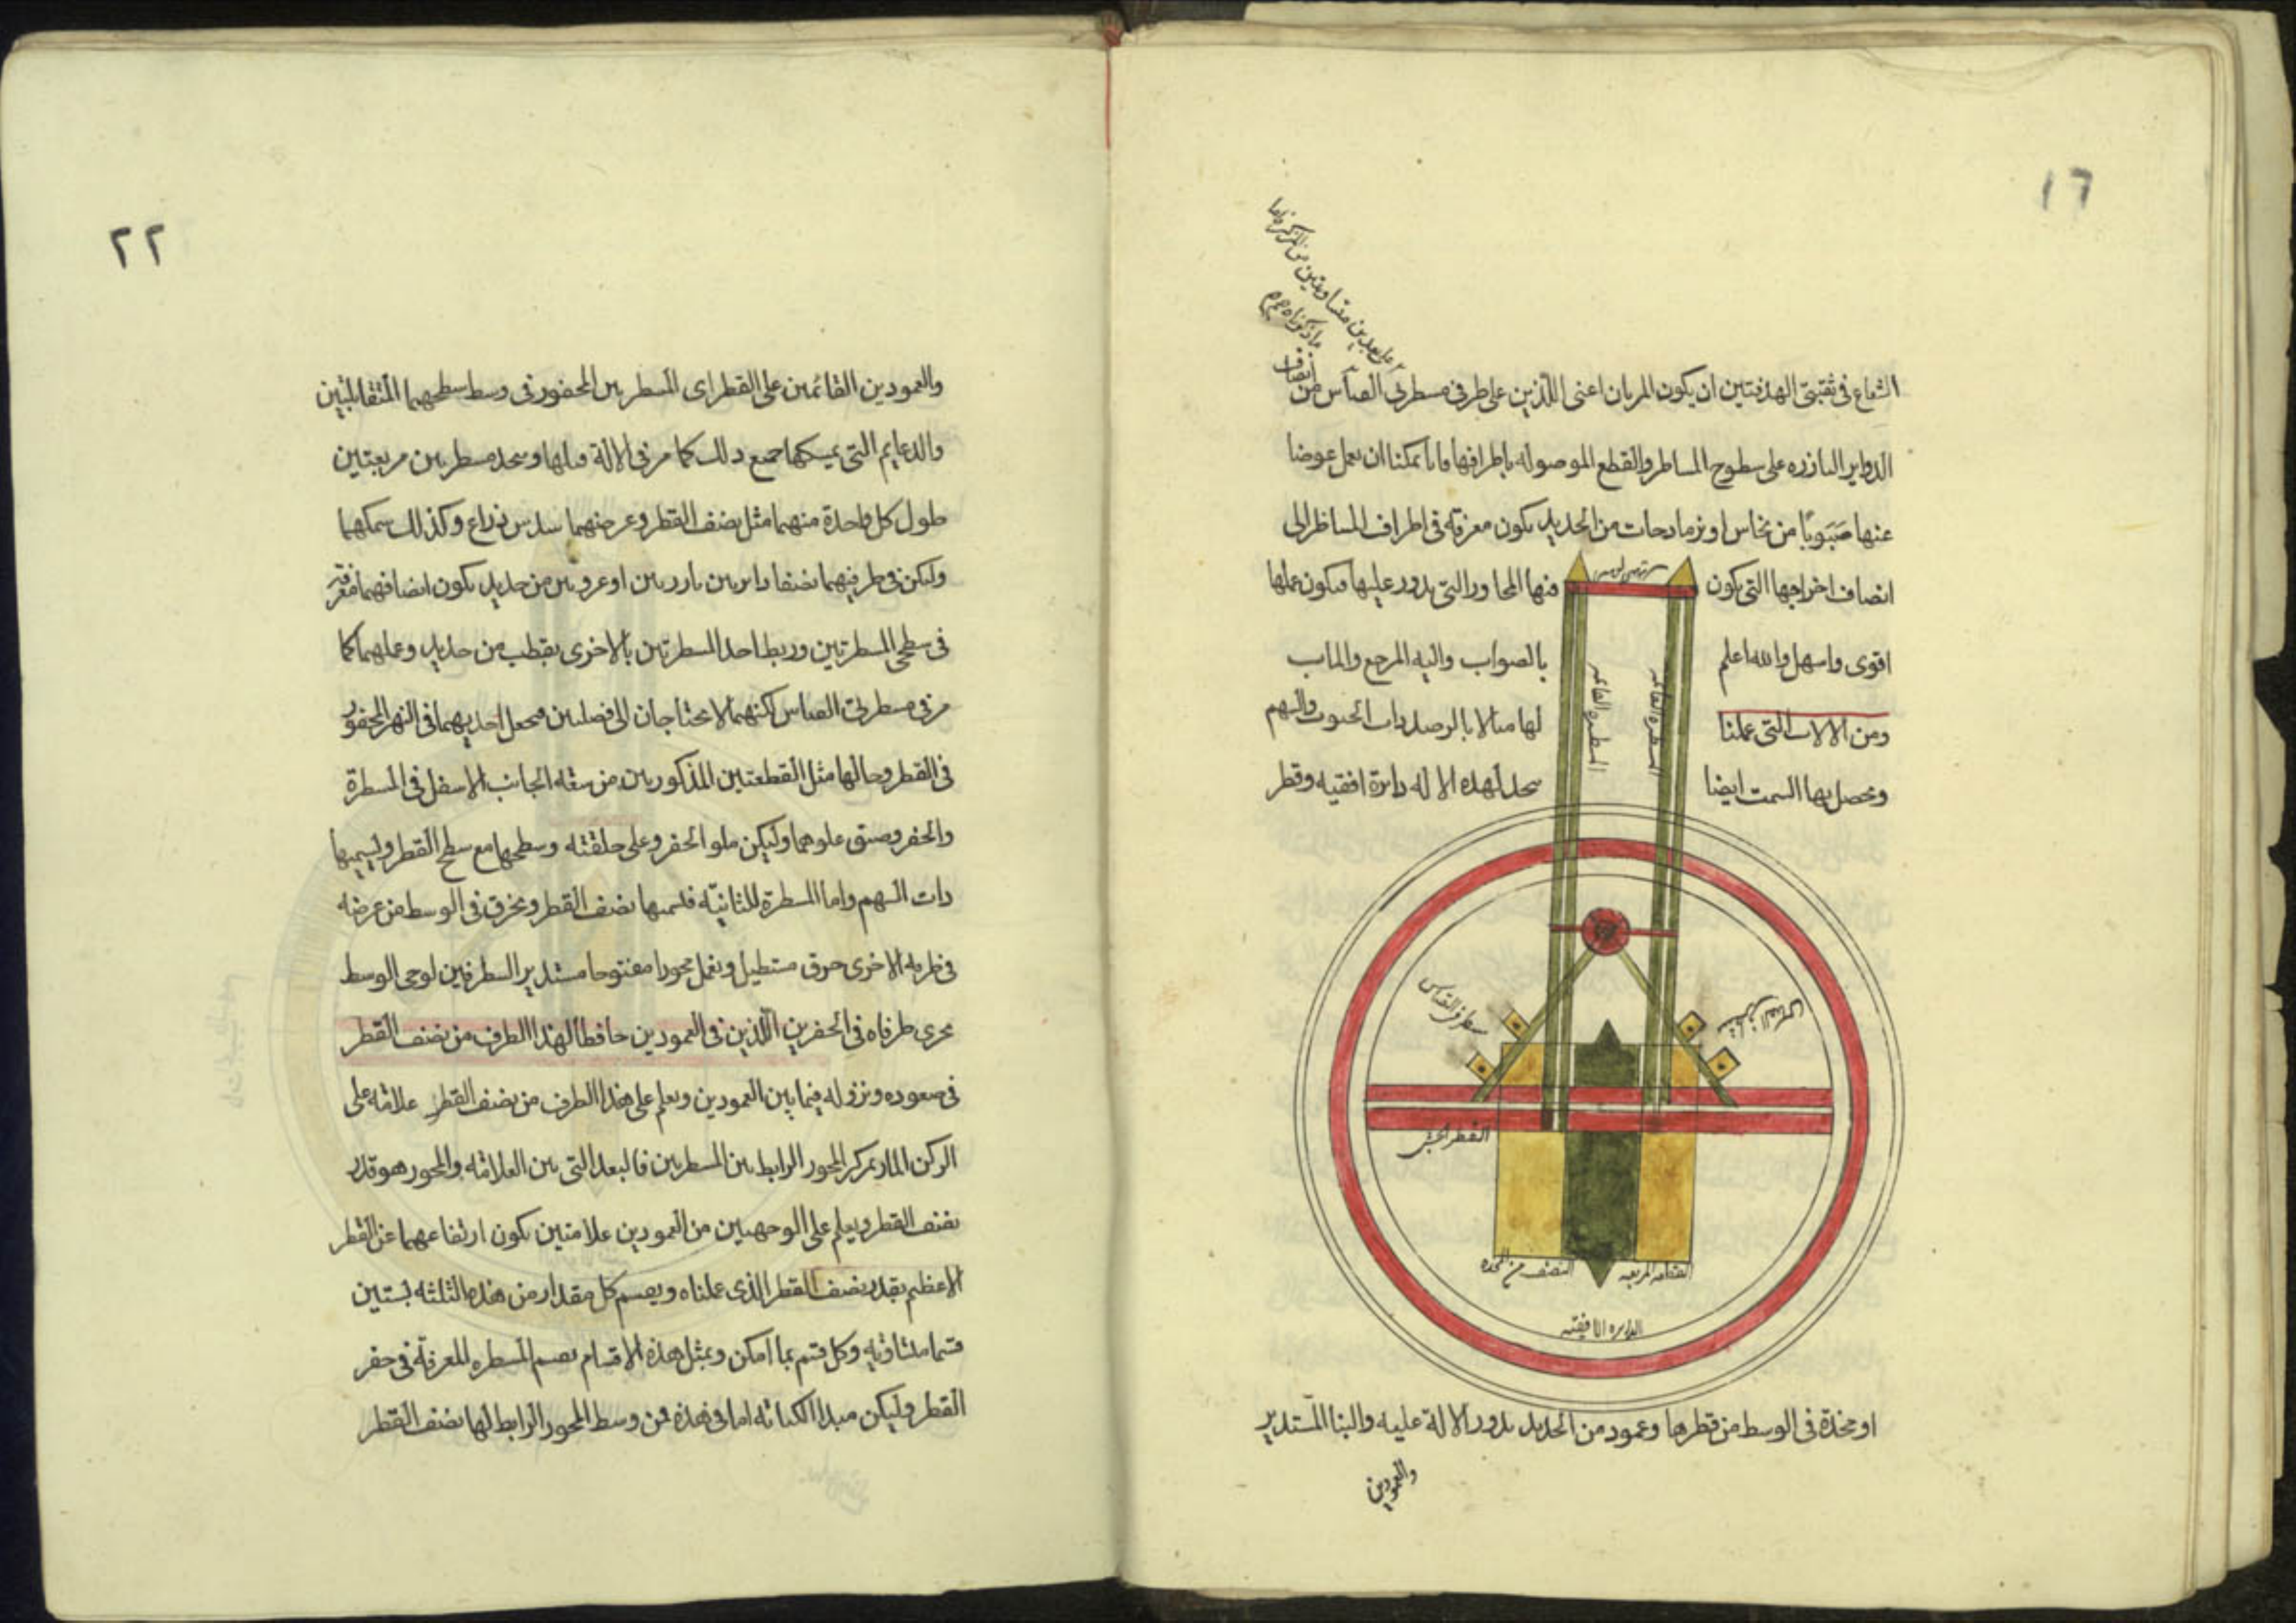 ١٦
الشعاع في ثقبتي الهدفتين ان يكون المربان اعنى اللذين على طرفي مسطرتي القياس من
انصاف
الدواير البارزه على سطوح المساطر والقطع الموصوله باطرافها فانا يمكننا ان نعمل عوضا
عنها من نحاس او نرمادجات من الحديد يكون مغرقه في اطراف المساطر الى
انصاف اخراجها التي يكون فيها المحاور التي يدور عليها فيكون عملها
اقوى واسهل والله اعلم بالصواب واليه المرجع والماب
ومن الالات التي عملنا لها مثالا بالرصد ذات الجيوب والسهم
ويحصل بها السمت ايضا يتخذ لهذه الاله دايرة افقيه وقطر
المسطره القائمه
المسطره القائمه
مسطرتي القياس
مسطرتي القياس
القطر
النصف من المخده
القاعده المربعه
الدايره الافقيه
او مخدة في الوسط من قطرها وعمود من الحديد يدور الالة عليه والبنا المستدير
والعمودين
٢٢
والعمودين القائمين على القطر اى المسطرتين المحفور في وسط سطحهما المتقابلتين
والدعايم التي يمسكها جميع ذلك كما مر في الالة قبلها ويتخذ مسطرتين مربعتين
طول كل واحدة منهما مثل نصف القطر وعرضهما سدس ذراع وكذلك سمكهما
وليكن في طرفيهما نصفا دايرتين بارزتين او عروتين من حديد يكون انصافهما مغرقة
في سطحي المسطرتين وربط احد المسطرتين بالاخرى بقطب من حديد وعملهما كما
مر في مسطرتي القياس لكنهما لا يحتاجان الى فصلتين فيجعل احديهما في النهر المحفور
في القطر وحالها مثل القطعتين المذكورتين من سعة الجانب الاسفل في المسطرة
والحفر وضيق علوهما وليكن ملو الحفر وعلى خلقته وسطحها مع سطح القطر وليسمها
ذات السهم واما المسطرة الثانية فلنسمها نصف القطر ويخرق في الوسط من عرضه
في طرفه الاخرى خرق مستطيل ونعمل محورا مفتوحا مستدير الطرفين لوحى الوسط
يجرى طرفاه في الحفرين اللذين في العمودين حافظا لهذا الطرف من نصف القطر
في صعوده ونزوله فيما بين العمودين ويعلم على هذا الطرف من نصف القطر علامة على
الركن المار بمركز المحور الرابط بين المسطرتين فالبعد التي بين العلامة والمحور هو قدر
نصف القطر ويعلم على الوجهين من العمودين علامتين يكون ارتفاعهما عن القطر
الاعظم بقدر نصف القطر الذى عملناه ويقسم كل مقدار من هذه الثلثه بستين
قسما متساويه وكل قسم بما امكن وبمثل هذه الاقسام يقسم المسطره المغرقة في حفر
القطر وليكن مبدا الكتابة اما في هذه فمن وسط المحور الرابط لها بنصف القطر